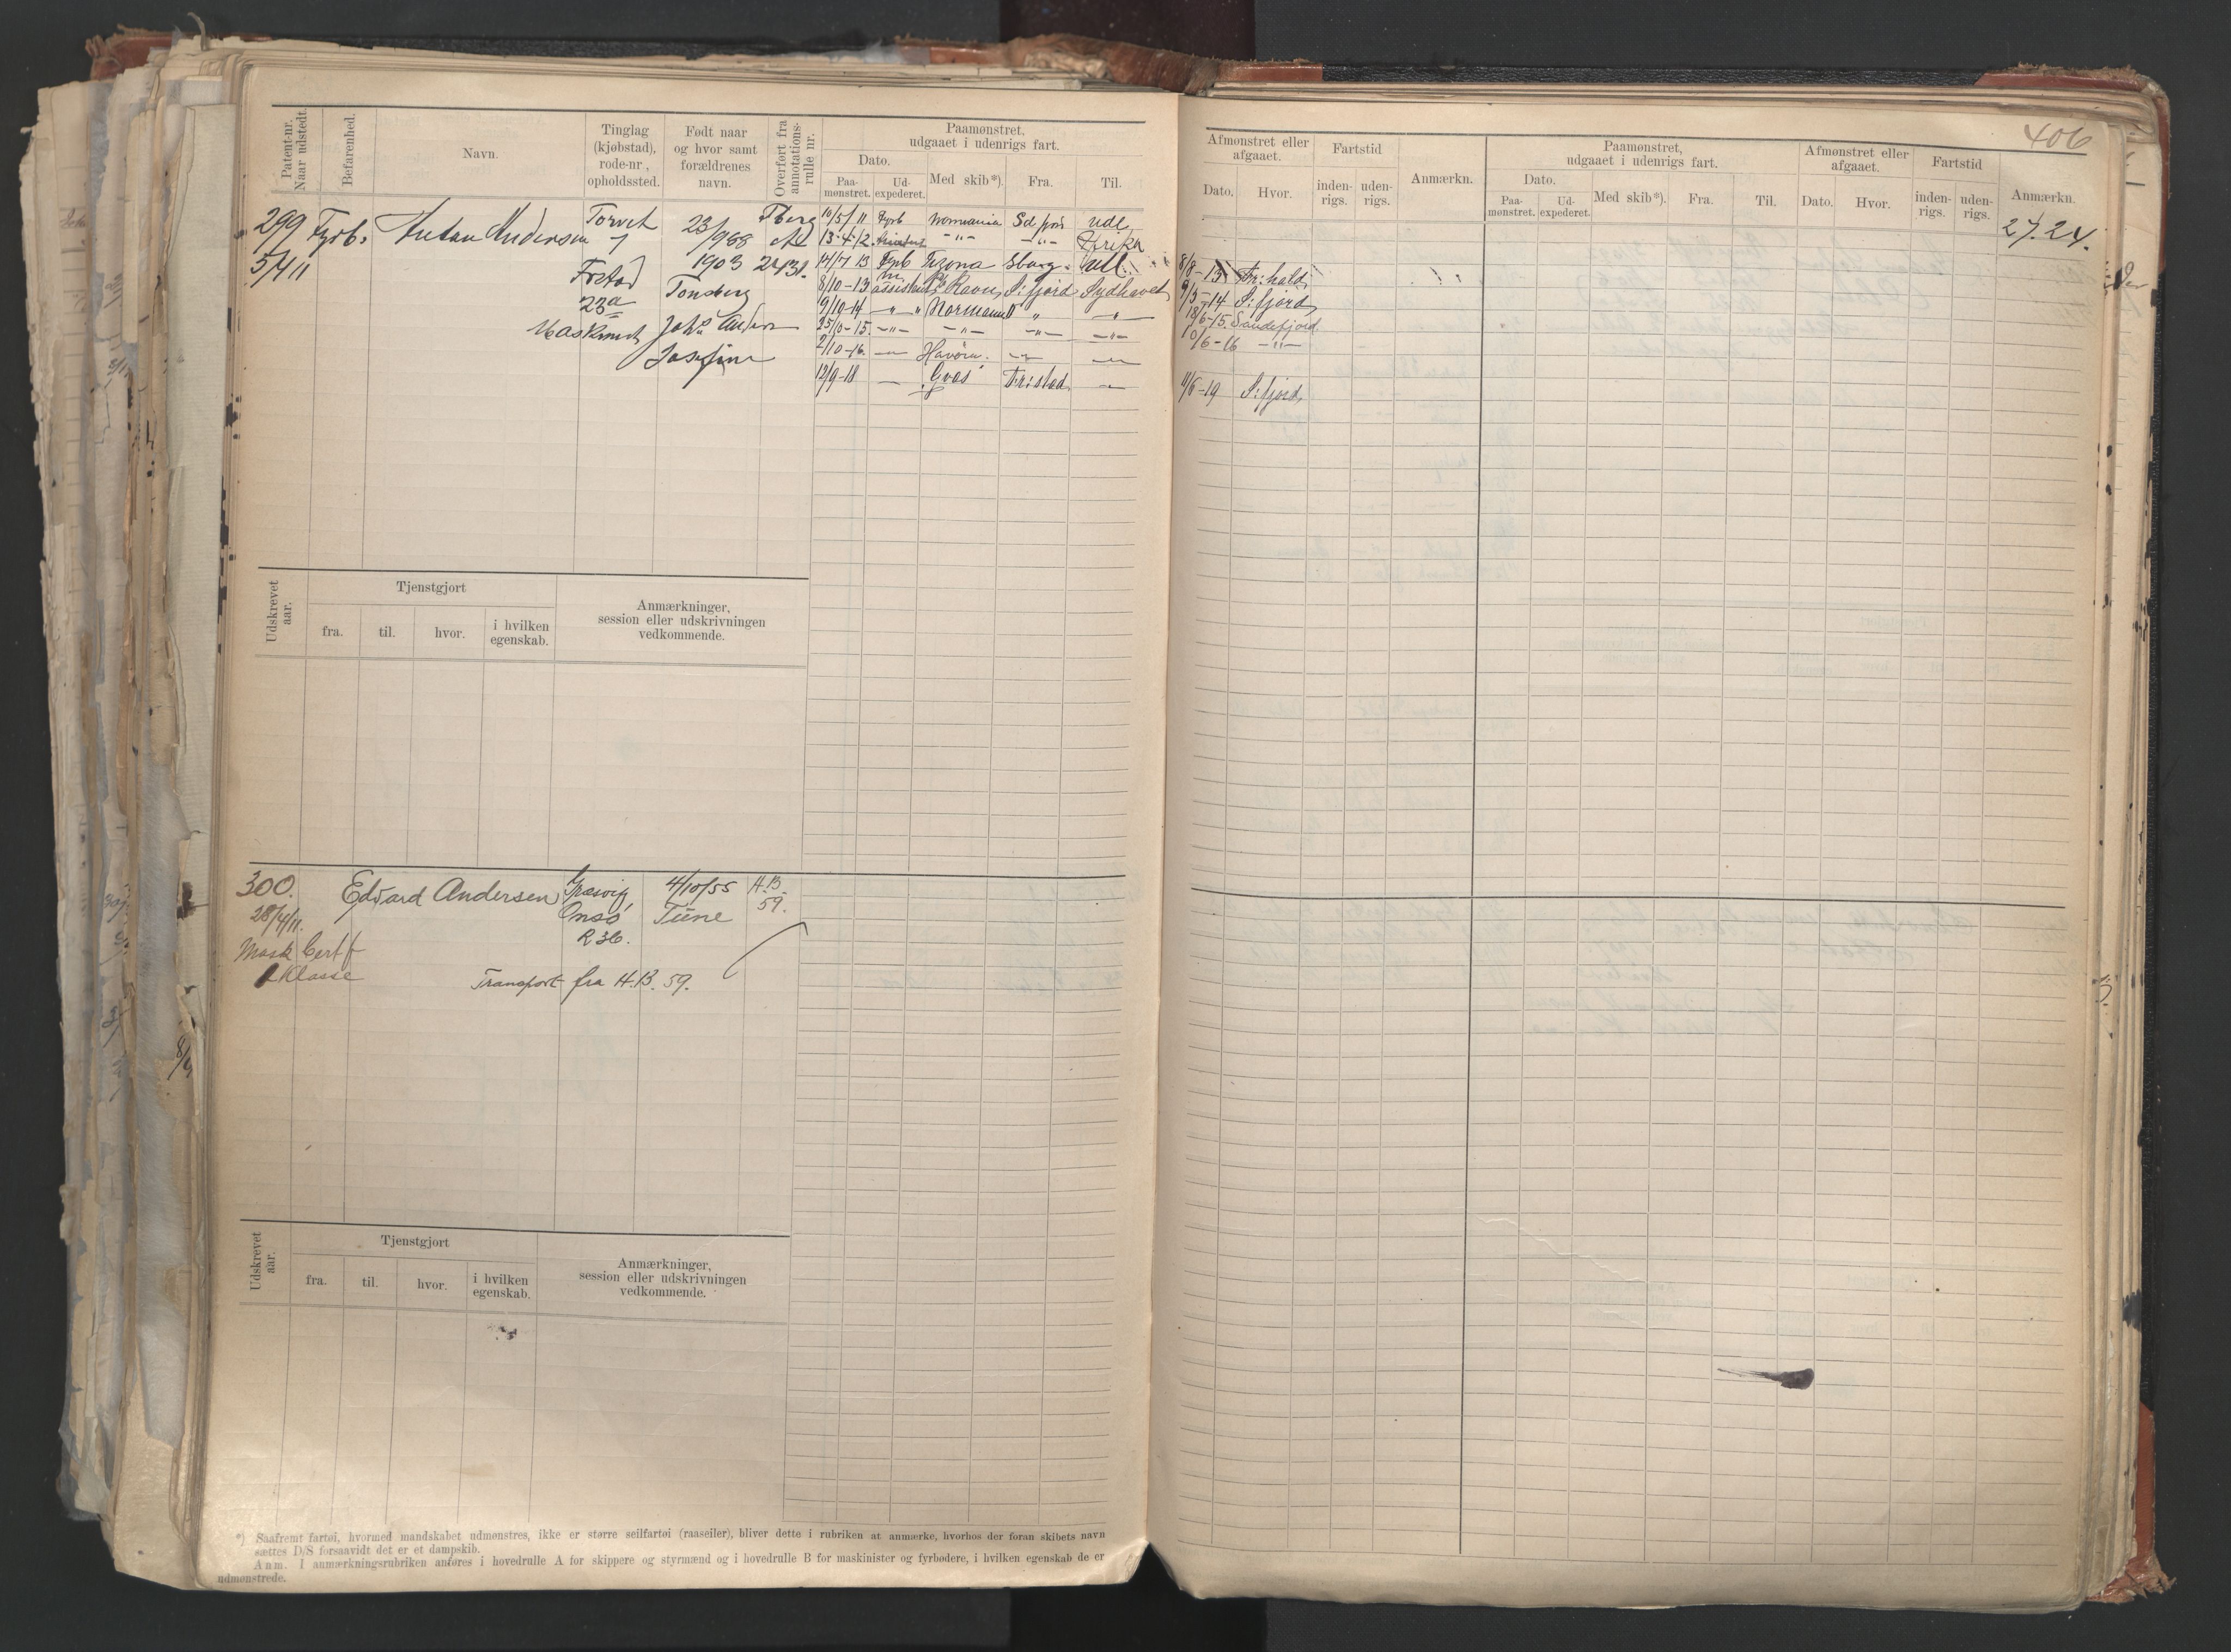 406
Patent-nr. Naar udstedt.
Befarenhed.
Navn.
Tinglag (kjøbstad), rode-nr., opholdssted.
Født naar og hvor samt forældrenes navn.
Overført fra annotations-rulle nr.
Paamønstret, udgaaet i udenrigs fart.
Dato.
Paa-mønstret.
Ud-expederet.
Med skib*).
Fra.
Til.
Afmønstret eller afgaaet.
Dato.
Hvor.
Fartstid
inden-rigs.
uden-rigs.
Anmærkn.
Paamønstret, udgaaet i udenrigs fart.
Dato.
Paa-mønstret.
Ud-expederet.
Med skib*).
Fra.
Til.
Afmønstret eller afgaaet.
Dato.
Hvor.
Fartstid
inden-rigs.
uden-rigs.
Anmærkn.
27.24.
299 Fyrb. Anton Andersen Torvet 23/ 988 Tberg
5/4 11 Frstad 1903 2431.
23a Tonsberg
Joh.
Josefine
10/5/11 Fyrb Normania Sdfjord udl
13-4/12 -"- -"- Afrika
14/7 13 Fyrb Sbarg. udl.
8/10-13 assistent Ravn S:fjord Sydhavet
9/10-14 " Normanna " "
25/10-15. -"- -"- -"- -"-
2/10-16. Havørn.
12/9-18 "Gvas" Fr:stad
8/8-13 Fr:hald
9/5-14 S:fjord
18/6-15. Sandefjord
10/6-16 -"-
11/6-19 S:fjord
Udskrevet aar.
Tjenstgjort
fra.
til.
hvor.
i hvilken egenskab.
Anmærkninger, session eller udskrivningen vedkommende.
300. Edvard Andersen Græsvig 4/10/55 H.B.
28/4/11. Onsø Tune 59.
R 36.
Mask Certf
1 Klasse
Transport fra H.B. 59.
Udskrevet aar.
Tjenstgjort
fra.
til.
hvor.
i hvilken egenskab.
Anmærkninger, session eller udskrivningen vedkommende.
*) Saafremt fartøi, hvormed mandskabet udmønstres, ikke er større seilfartøi (raaseiler), bliver dette i rubriken at anmærke, hvorhos der foran skibets navn
sættes D/S forsaavidt det er et dampskib.
Anm. I anmærkningsrubriken anføres i hovedrulle A for skippere og styrmænd og i hovedrulle B for maskinister og fyrbødere, i hvilken egenskab de er
udmønstrede.